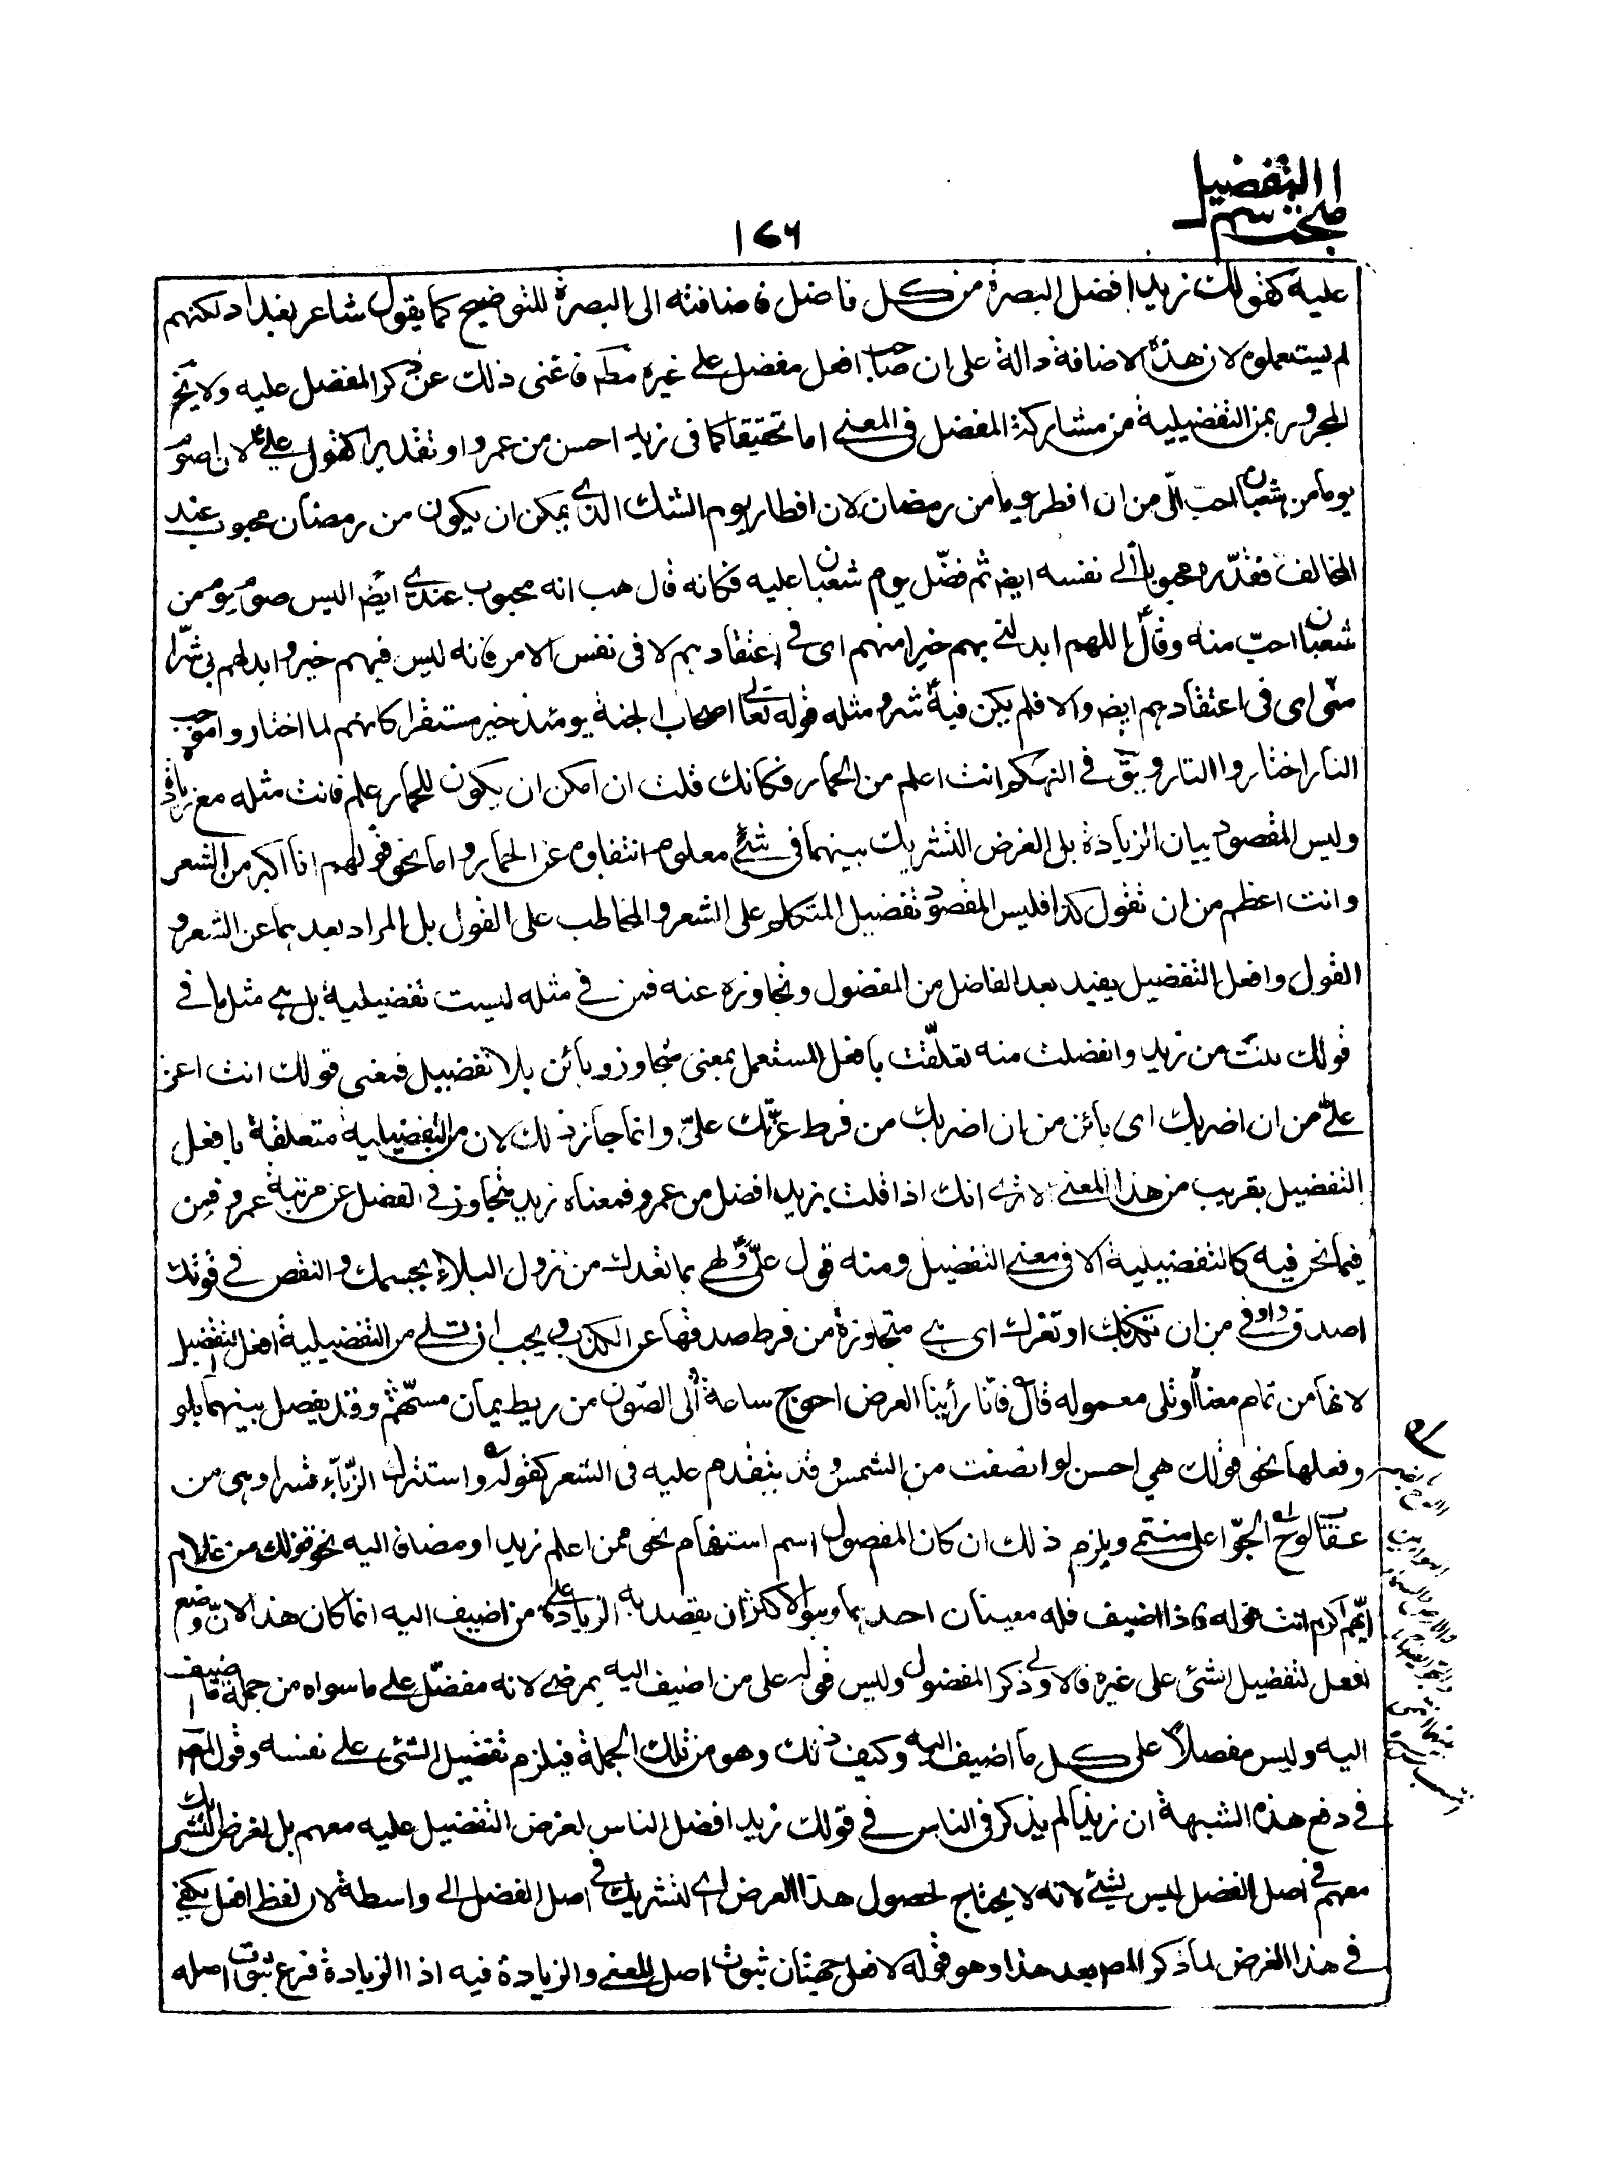 التفضيل
مبحث اسم
١٧٦
عليه كقولك زيد افضل البصرة من كل فاضل فاضافته الى البصرة للتوضيح كما يقول شاعر بغداد لكنهم
لم يستعملوه لان هذه الاضافة دالة على ان صاحب افعل مفضل على غيره مطه فاغنى ذلك عن ذكر المفضل عليه ولا يخ
المجرور بمن التفضيلية من مشاركة المفضل فى المعنى اما تحقيقا كما فى زيد احسن من عمرو او تقديرا كقول على ع لان اصوم
يوما من شعبان احب الىّ من ان افطر يوما من رمضان لان افطار يوم الشك الذى يمكن ان يكون من رمضان محبوب عند
المخالف فقدّره محبوبا الى نفسه ايضه ثم فضّل يوم شعبان عليه فكانه قال هب انه محبوب عندى ايضه اليس صوم يوم من
شعبان احبّ منه وقال اللهم ابدلنى بهم خيرا منهم اى فى اعتقادهم لا فى نفس الامر فانه ليس فيهم خير وابدلهم بى شرّا
منّى اى فى اعتقادهم ايضه والا فلم يكن فيه شر ومثله قوله تعالى اصحاب الجنة يومئذ خير مستقرا كانهم لما اختاروا موجب
النار اختاروا النار ويق فى التهكم انت اعلم من الحمار فكانك قلت ان امكن ان يكون للحمار علم فانت مثله مع زيادة
وليس المقصود بيان الزيادة بل الغرض التشريك بينهما فى شئ معلوم انتفاوه عن الحمار واما نحو قولهم انا اكبر من الشعر
وانت اعظم من ان تقول كذا فليس المقصود تفضيل المتكلم على الشعر والمخاطب على القول بل المراد بعدهما عن الشعر و
القول وافعل التفضيل يفيد بعد الفاضل من المفضول وتجاوزه عنه فمن فى مثله ليست تفضيلية بل هى مثل ما فى
قولك بنت من زيد وانفصلت منه تعلّقت بافعل المستعمل بمعنى متجاوز وبائن بلا تفضيل فمعنى قولك انت اعز
علىّ من ان اضربك اى بائن من ان اضربك من فرط عزّتك علىّ وانما جاز ذلك لان من التفضيلية متعلقة بافعل
التفضيل بقريب من هذا المعنى الا ترى انك اذا قلت زيد افضل من عمرو فمعناه زيد متجاوز فى الفضل عن مرتبة عمرو فمن
فيما نحن فيه كالتفضيلية الا فى معنى التفضيل ومنه قول علىّ ع ولهى بما تعدك من نزول البلاء بجسمك والنقص فى قوتك
اصدق واوفى من ان تكذبك او تغرك اى هى متجاوزة من فرط صدقها عن الكذب ويجب ان تلى من التفضيلية افعل التفضيل
لانها من تمام معناه او تلى معموله قال فانّا رأينا العرض احوج ساعة الى الصّون من ريط يمان مسهّم وقد يفصل بينهما بلو
وفعلها نحو قولك هى احسن لو انصفت من الشمس وقد يتقدم عليه فى الشعر كقوله واستنزل الزبّاء قسرا وهى من
عقاب لوح الجوّ اعلى منتمى ويلزم ذلك ان كان المفضول اسم استفهام نحو ممن اعلم زيد او مضاف اليه نحو قولك من غلام
ايّهم اكرم انت قوله فاذا اضيف فله معينان احدهما وهو الاكثر ان يقصد به الزيادة على من اضيف اليه انما كان هذا لانّ وضع
افعل لتفضيل الشئ على غيره فالاولى ذكر المفضول وليس قوله على من اضيف اليه بمرضى لانه مفضّل على ما سواه من جملة ما اضيف
اليه وليس مفضلا على كل ما اضيف اليه وكيف ذلك وهو من تلك الجملة فيلزم تفضيل الشئ على نفسه وقول المص
فى دفع هذه الشبهة ان زيدا لم يذكر فى الناس فى قولك زيد افضل الناس لغرض التفضيل عليه معهم بل لغرض التشريك
معهم فى اصل الفضل ليس بشئ لانه لا يحتاج لحصول هذا الغرض اى التشريك فى اصل الفضل الى واسطة لان لفظ افعل يكفى
فى هذا الغرض لما ذكر المص بعد هذا وهو قوله لافعل جهتان ثبوت اصل المعنى والزيادة فيه اذ الزيادة فرع ثبوت اصله